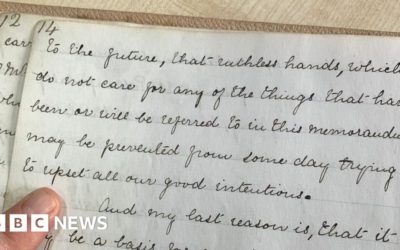 12
14
car
to the future, that ruthless hands, which
do not care for any of the things that have
been or will be referred to in this memorandu
may be prevented from some day trying
to upset all our good intentions.
And my last reason is, that it
y be a basis for
BBC NEWS